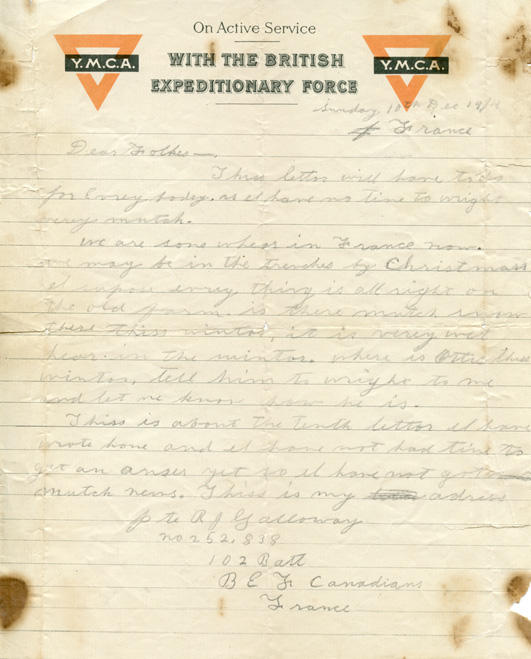 On Active Service
Y.M.C.A. WITH THE BRITISH Y.M.C.A.
EXPEDITIONARY FORCE
Sunday, 10th Dec 1916
France
Dear Folkes—.
Thiss letter will have to do
for Evrey body. as I have no time to wright
verey mutch.
we are some whear in France now.
we may be in the trenches by Christmass
I supose evrey thing is all right on
the old farm. is there mutch snow
there thiss wintor, it is verey wet
hear in the wintor. where is Otto thiss
wintor, tell him to wright to me
and let me know how he is.
Thiss is about the tenth letter I have
wrote home and I have not had time to
get an anser yet so I have not got
mutch news. Thiss is my adress
pte R J Galloway
no 252,838
102 Batt
B E F Canadians
France